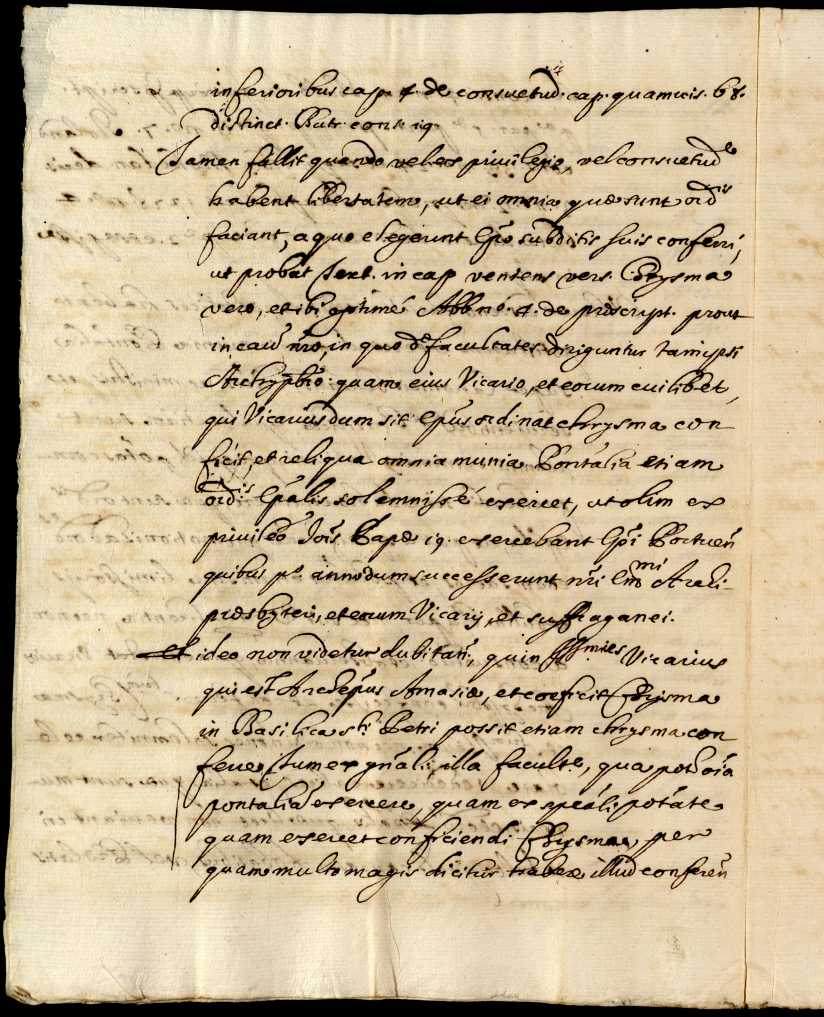 inferioribus cap. 4. de consuetud. cap. quamuis. 68.
distinct. Butr. cons. 19.
Tamen fallit quando vel ex priuilegio, vel consuetud.e
habent libertatem, ut ei omnia quæ sunt ord.is
faciant, a quo elegerunt Ep̃o subditis suis conferri,
ut probat text. in cap. veniens vers. Chrysma
vero, et ibi optime Abb. nõ. 4. de præscript. prout
in casu nr̃o, in quo d.æ facultates diriguntur tam ipsi
Archipbr̃o quam eius Vicario, et eorum cuilibet,
qui Vicarius dum sit Ep̃us ordinat chrysma con
ficit, et reliqua omnia munia Pont̃alia etiam
ord.is Ep̃alis solemnissé exercet, ut olim ex
priuileg̃o Jõis Papæ 19. exercebant Ep̃i Portueñ
quibus p.º annodum successerunt nr̃i Em̃mi Archi
præsbyteri, et eorum Vicarij, et suffraganei.
Et ideo non videtur dubitañ, quin Ill.mus Vicarius
qui est Archiep̃us Amasiæ, et conficit Chrysma
in Basilica S.ti Petri possit etiam chrysma con
ferre tum ex gñali illa facult.e, qua pot.t oĩa
pontalia exercere, quam ex speãli potãte
quam exercet conficiendi Chrysma, per
quam multo magis dicitur habere illud conferen